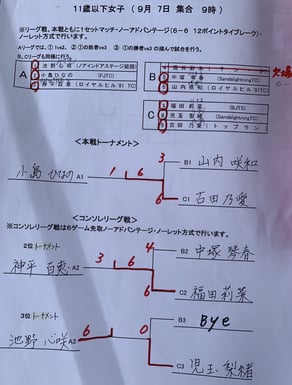 11歳以下女子 ( 9月 7日 集合 9時 )
※リーグ戦、本戦ともに1セットマッチ・ノーアドバンテージ(6-6 12ポイントタイブレーク)・
ノーレット方式で行います。
Aリーグでは、① 1vs2、② ①の敗者vs3 ③ ①の勝者vs3 の進んで試合を行う。
B、Cリーグも同様に行う。
A
1 池野 心咲 (ノアインドアステージ姫路)
2 小島 ひなの (FJTC)
3 神平 百恵 (ロイヤルヒル'81TC)
B
2 中塚 琴春 (SandelightningTC)
3 山内 咲和 (ロイヤルヒル'81TC)
欠場
C
1 福田 莉菜 (SJTS)
2 児玉 梨緒 (SandelightningTC)
3 古田 乃愛 (トップラン
<本戦トーナメント>
小島 ひなの A1
1 6
3
B1 山内 咲和
6
C1 古田 乃愛
<コンソレリーグ戦>
※コンソレリーグ戦は6ゲーム先取ノーアドバンテージ・ノーレット方式で行います。
2位トーナメント
神平 百恵 A2
3 6
4
B2 中塚 琴春
6
C2 福田 莉菜
3位トーナメント
池野 心咲 A3
6 0
B3 Bye
C3 児玉 梨緒